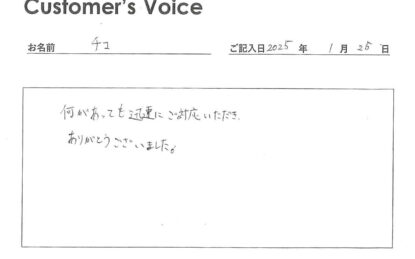 Customer's Voice
お名前 チコ ご記入日 2025 年 1 月 25 日
何があっても迅速にご対応いただき、
ありがとうございました。